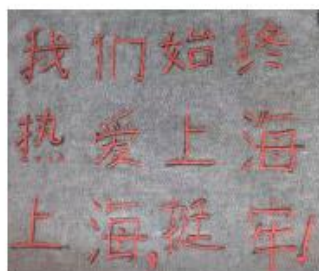 我们始终
热爱上海
上海,挺牢!